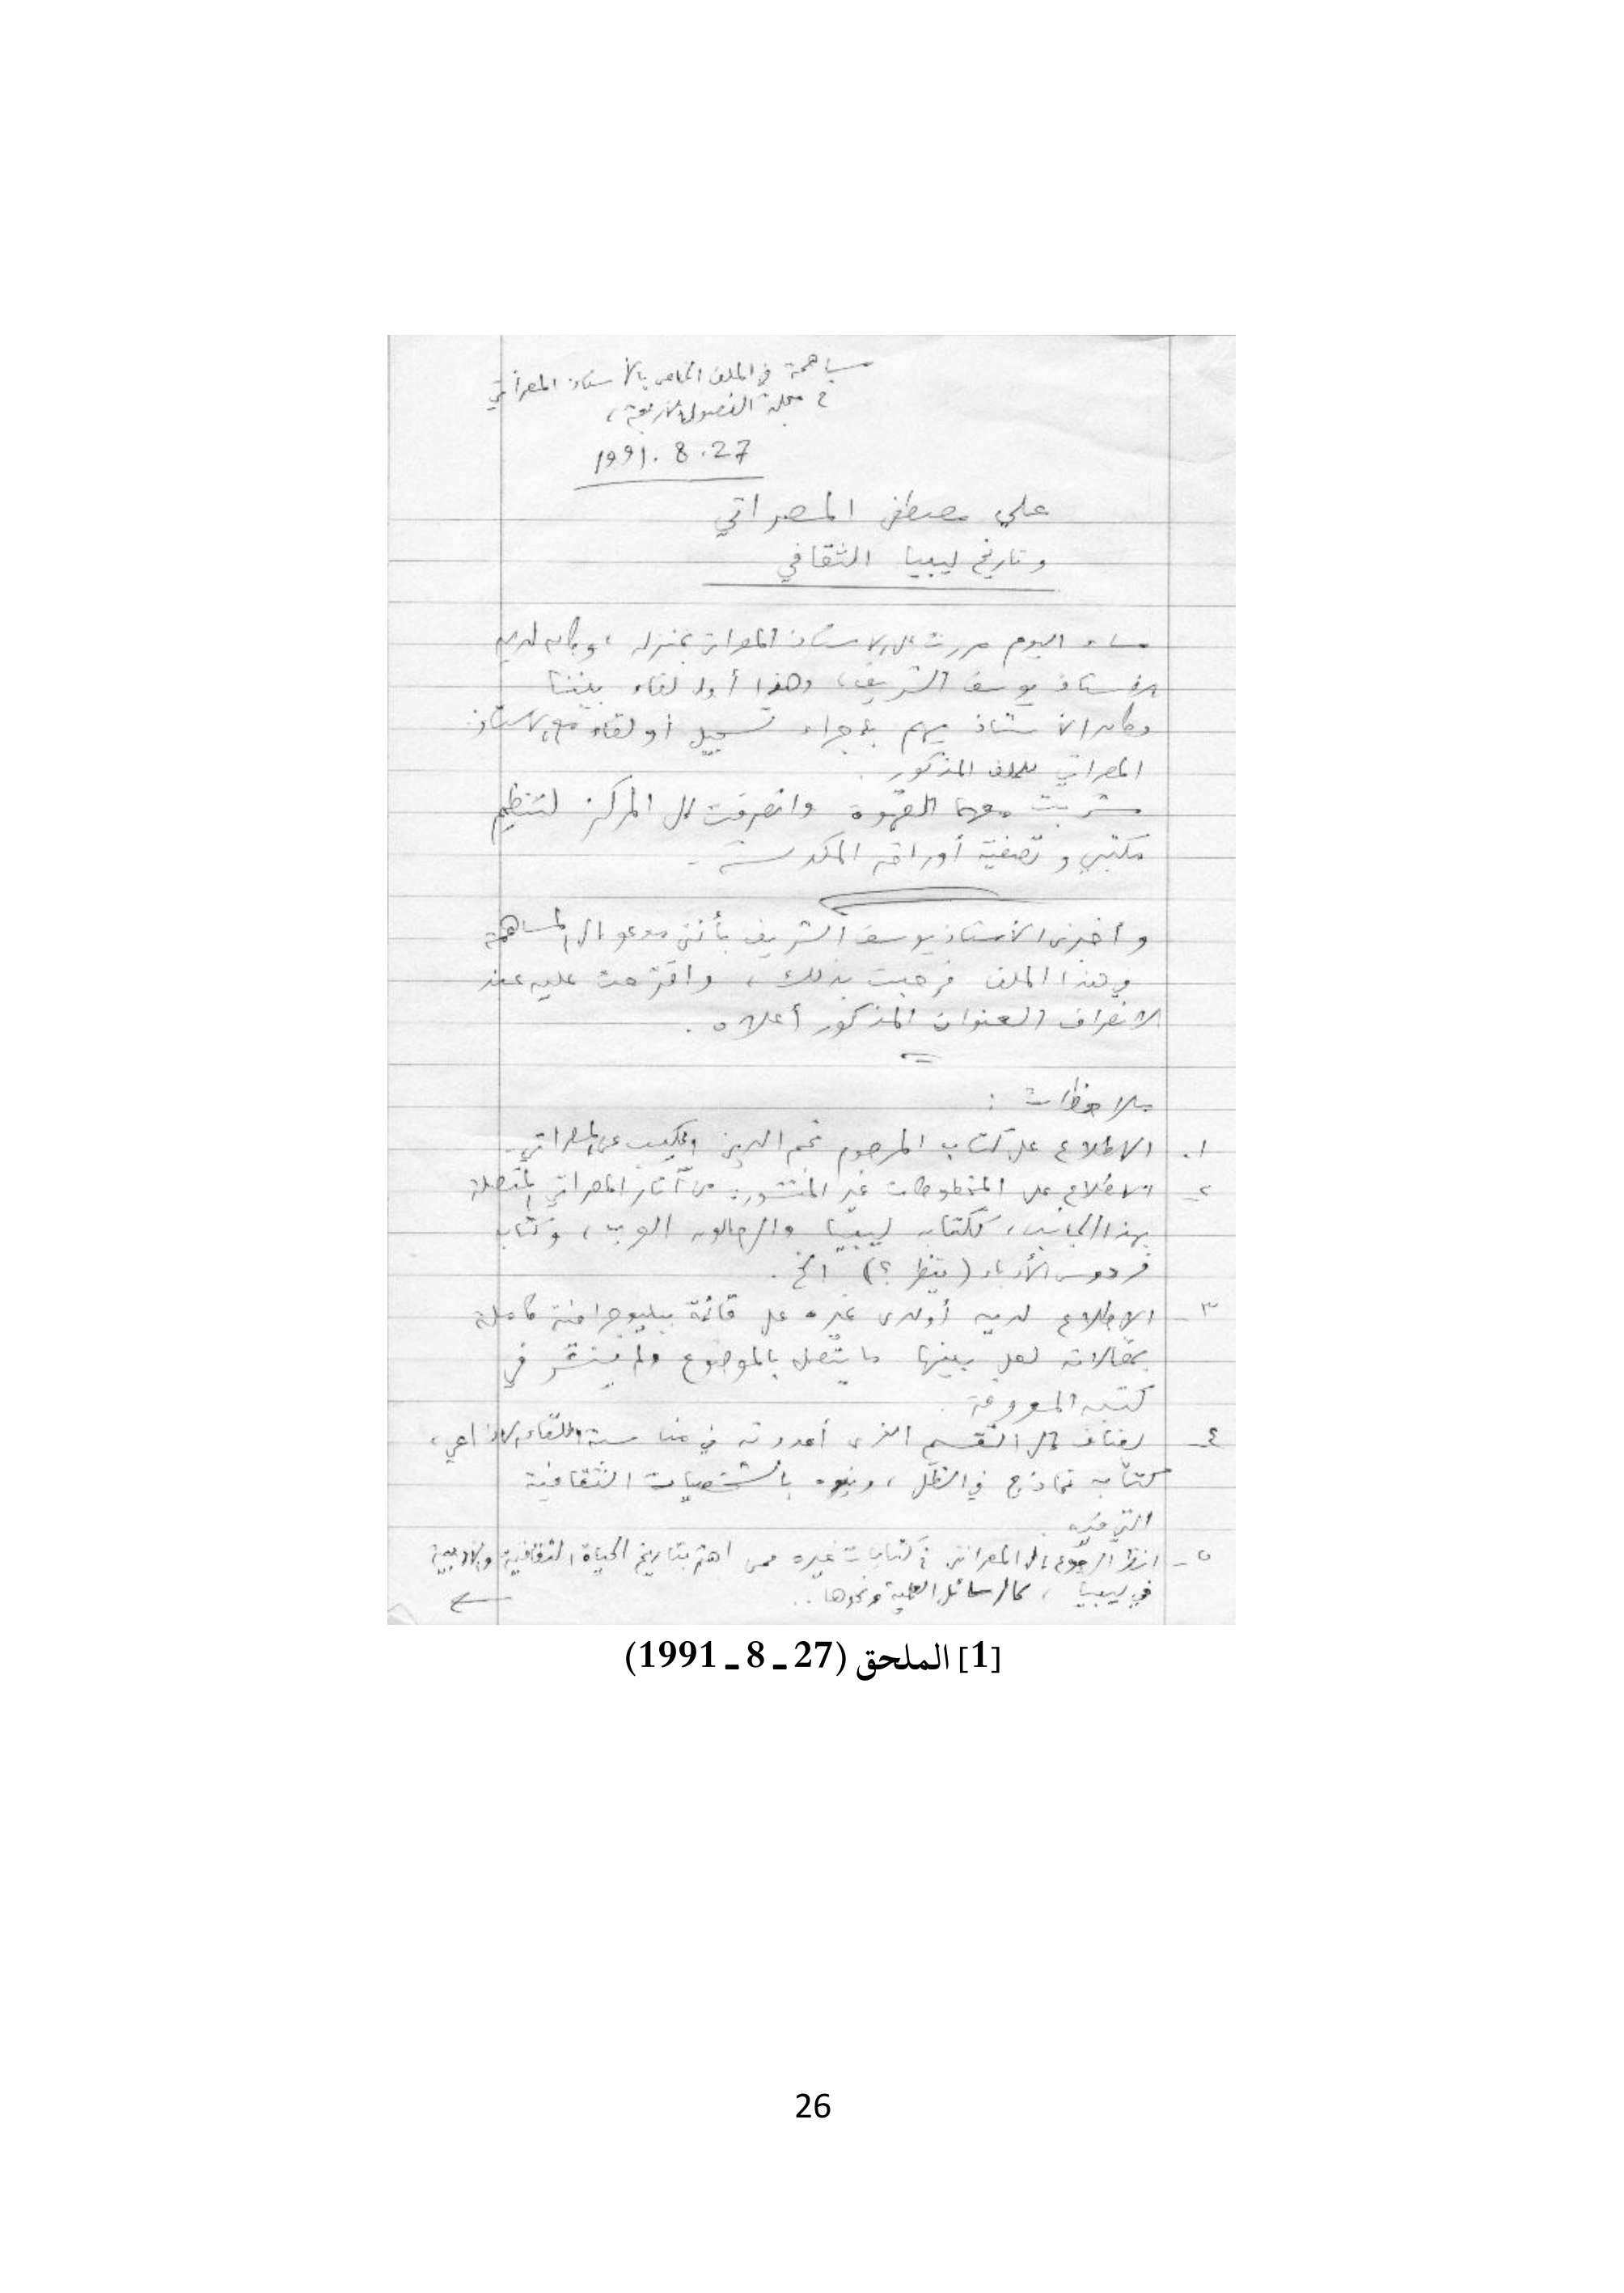 مساهمة في الملف الخاص بالأستاذ المصراتي
في مجلة الفصول الأربعة،
1991.8.27
علي مصطفى المصراتي
وتاريخ ليبيا الثقافي
مساء اليوم مررت على الاستاذ المصراتي بمنزله، وكان لديه
الأستاذ يوسف الشريف، وهذا أول لقاء بيننا
وكان الأستاذ يهم بإجراء تسجيل أو لقاء مع الاستاذ
المصراتي للملف المذكور.
شربت معهما القهوة وانصرفت الى المركز لتنظيم
مكتبي وتصفية أوراقه المكدسة.
وأخبرني الأستاذ يوسف الشريف بأنني مدعو إلى المساهمة
في هذا الملف فرحبت بذلك، واقترحت عليه عند
الانصراف العنوان المذكور أعلاه.
ملاحظات :
١. الاطلاع على كتاب المرحوم نجم الدين الكيب عن المصراتي.
٢- الاطلاع على المخطوطات غير المنشورة من آثار المصراتي المتصلة
بهذا الجانب، ككتاب ليبيا والرحالون العرب، وكتاب
فردوس الأدباء (ينظر ؟) الخ.
٣- الاطلاع لديه أو لدى غيره على قائمة ببليوجرافية كاملة
بمقالاته لعل بينها ما يتصل بالموضوع ولم ينشر في
كتبه المعروفة.
٤- يضاف إلى التقسيم الذي أعددته في مناسبة اللقاء الاذاعي،
كتاب نماذج في الظل، وينوه بالشخصيات الثقافية
٥- انظر الرجوع إلى المصراتي في كتابات غيره ممن اهتم بتاريخ الحياة الثقافية والأدبية
في ليبيا، كالرسائل العلمية ونحوها..
[1] الملحق (27 ـ 8 ـ 1991)
26